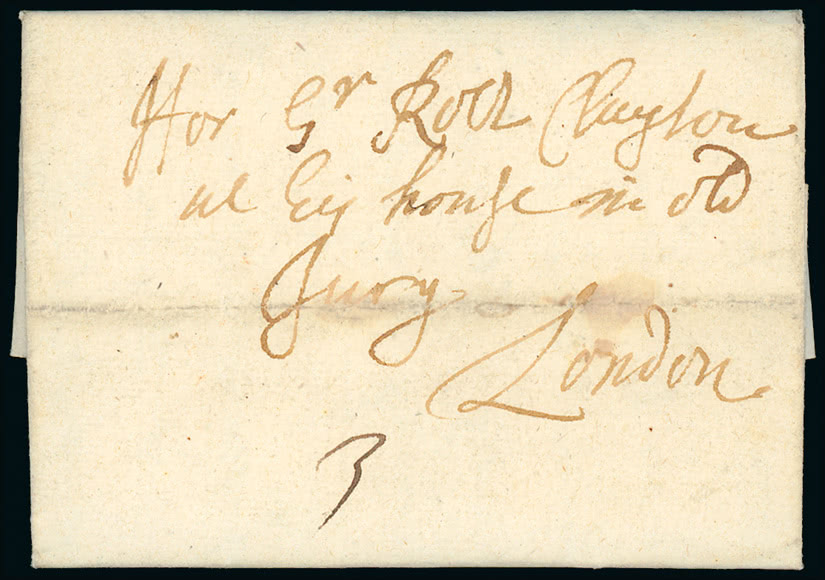 ffor Sr Robt Clayton
at his house in old
Jury
London
3